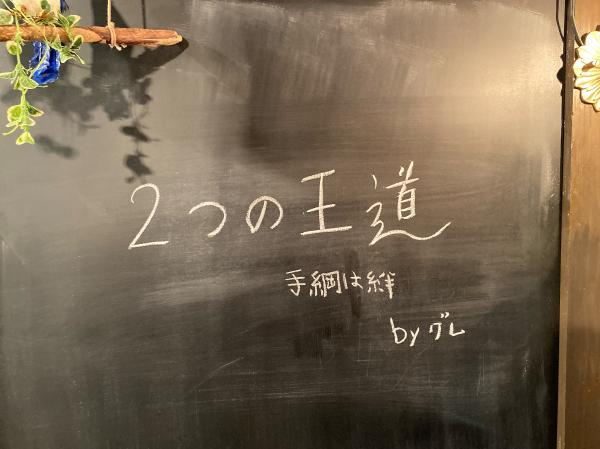 2つの王道
手綱は絆
byグレ